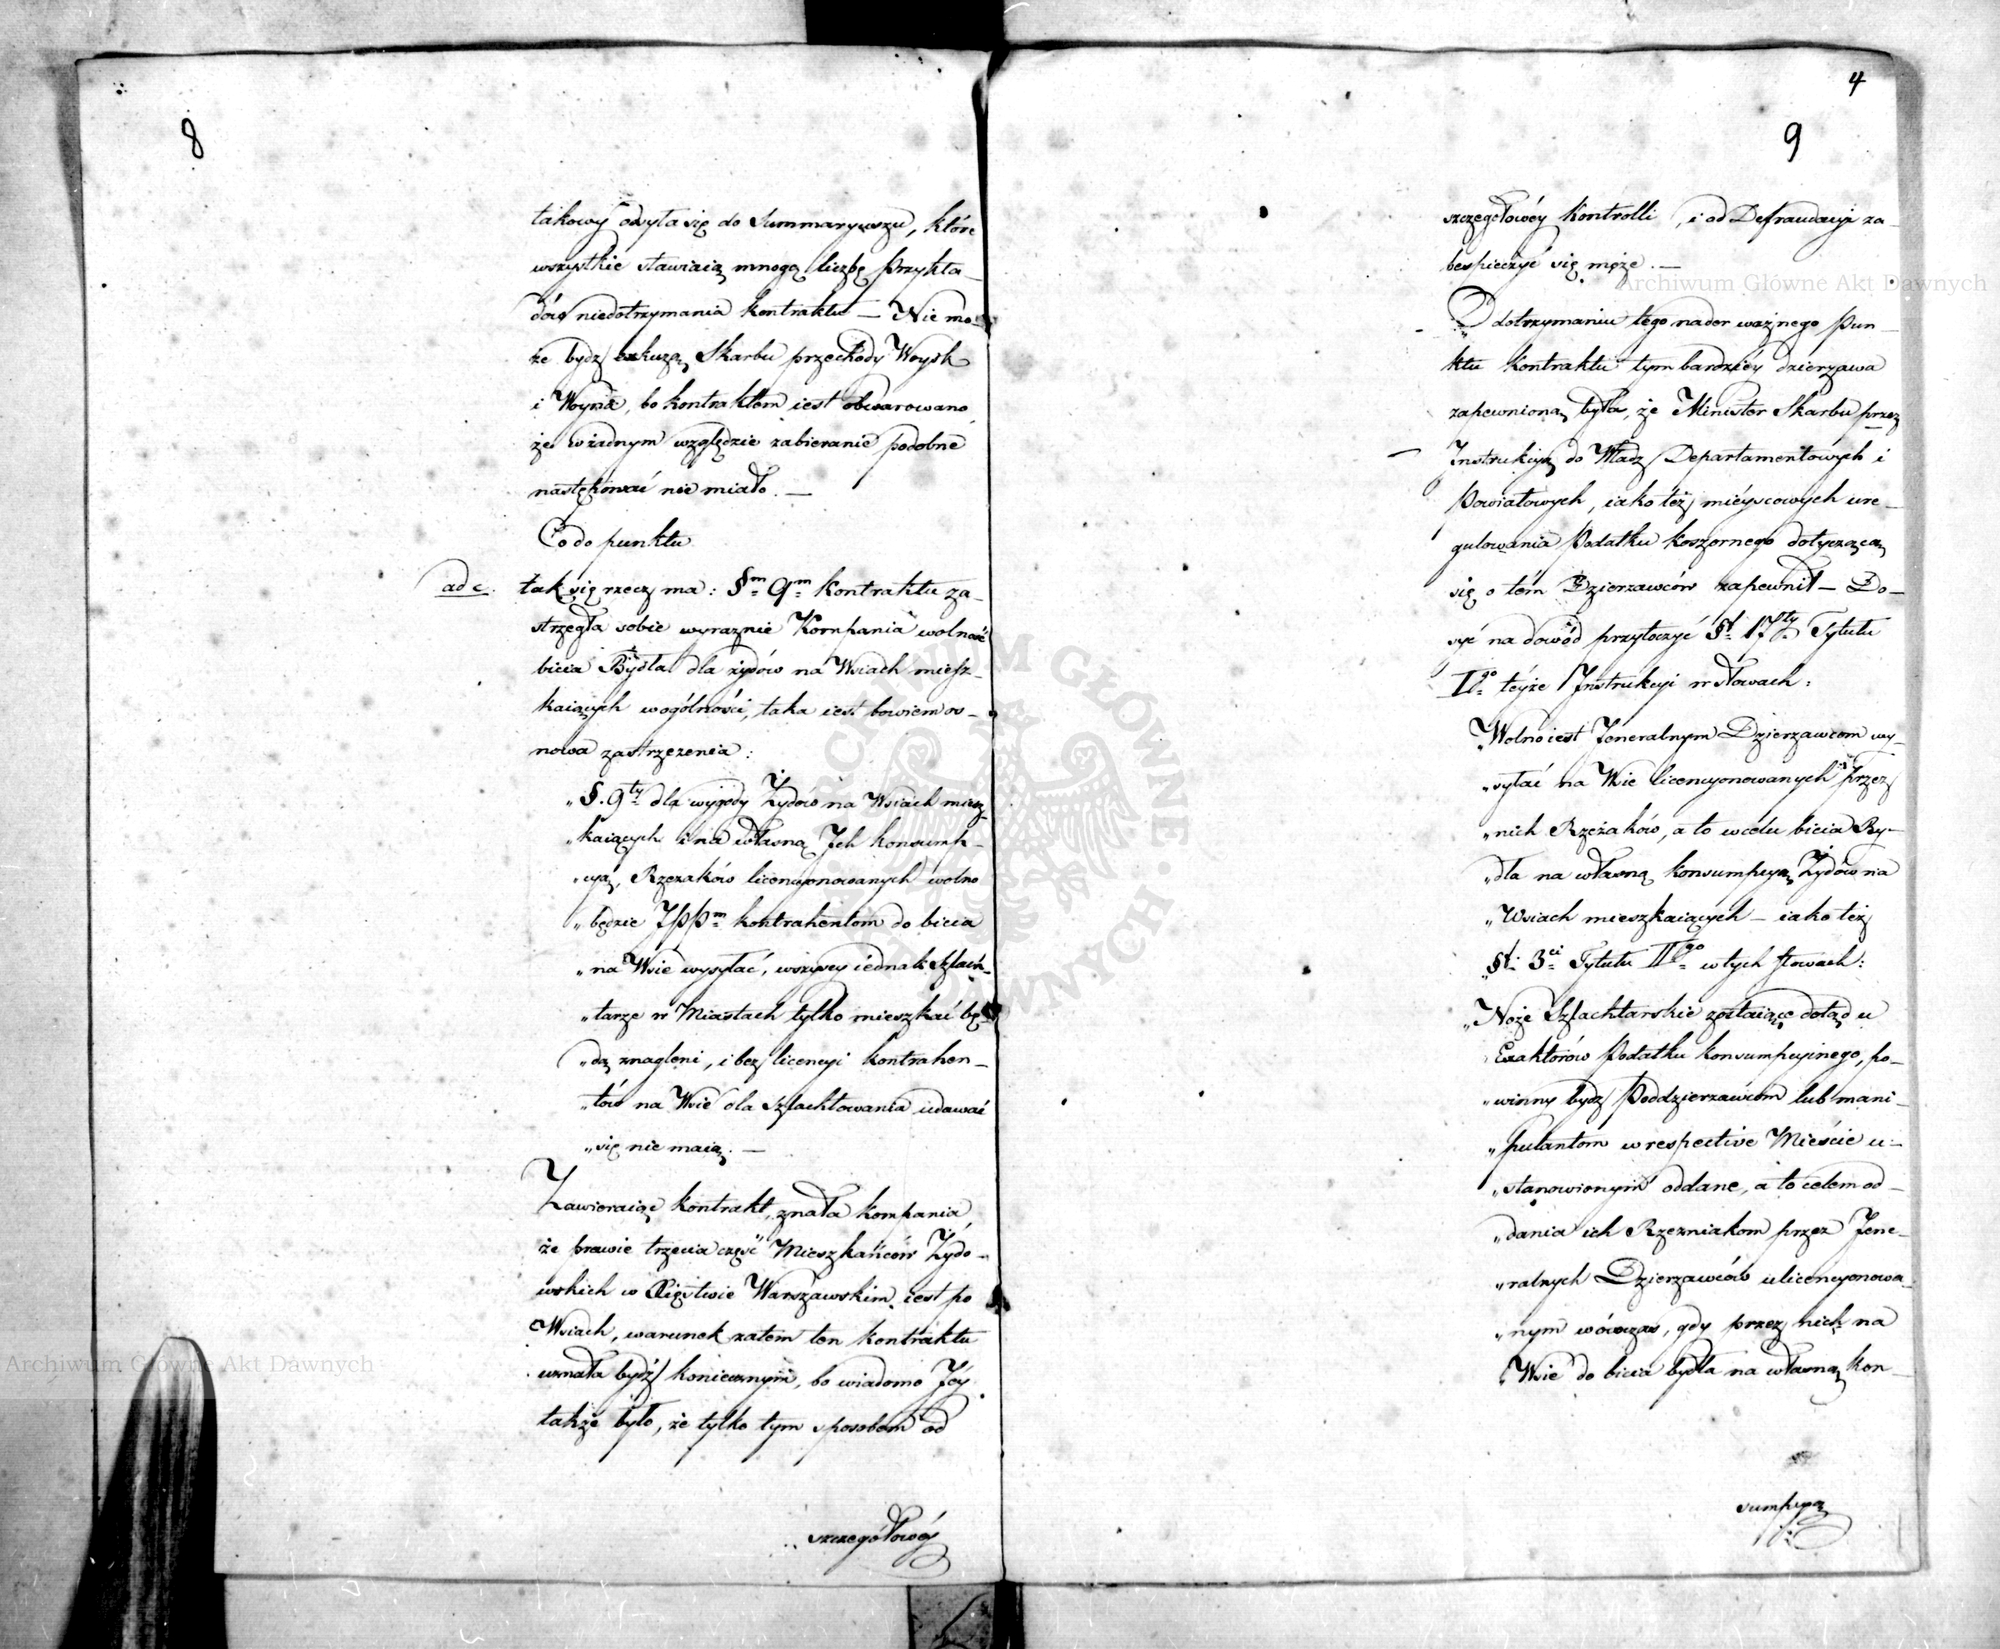 8
takowy odsyła się do Summaryuszu, które
wszystkie stawiaią mnogą liczbę Przykła-
dów niedotrzymania kontraktu — Nie mo-
że bydz exkuzą Skarbu przechody Woysk
i Woyna, bo kontraktem iest obwarowano
że w żadnym względzie zabieranie podobne
następować nie miało. —
Co do punktu
ad c. tak się rzecz ma: §m 9m Kontraktu za-
strzegła sobie wyraznie Kompania wolność
bicia Bydła dla żydów na Wsiach miesz-
kaiących w ogólności, taka iest bowiem os-
nowa zastrzezenia:
„§. 9ty dla wygody Żydów na Wsiach miesz-
„kaiących i na własną Ich konsump-
„cyą, Rzezaków licencyonowanych wolno
„będzie JPPm kontrahentom do bicia
„na Wsie wysyłać, wszyscy iednak Szlach-
„tarze w Miastach tylko mieszkać bę-
„dą znagleni, i bez licencyi kontrahen-
„tów na Wsie dla Szlachtowania udawać
„się nie maią. —
Zawieraiąc kontrakt, znała kompania,
że prawie trzecia część Mieszkańców Żydo-
wskich w Xięstwie Warszawskim iest po
Wsiach, warunek zatem ten kontraktu
uznała bydź koniecznym, bo wiadomo Jey
także było, że tylko tym sposobem od
szczegółowéy
4
9
szczegółowéy Kontrolli, i od Defraudacyi za-
bespieczyć się może. —
O dotrzymaniu tego nader ważnego Pun-
ktu Kontraktu tym bardziéy dzierzawa
zapewnioną była, że Minister Skarbu przez
Instrukcyą do Władz Departamentowych i
Powiatowych, iako też miéyscowych ure-
gulowania Podatku koszernego dotyczącą
się o tém Dzierzawców zapewnił — Do-
syć na dowód przytoczyć §f 17ty Tytułu
IIgo teyże Instrukcyi w słowach:
„Wolno iest Jeneralnym Dzierzawcom wy-
„syłać na Wsie licencyonowanych przez
„nich Rzezaków, a to w celu bicia By-
„dła na własną konsumpcyą Żydów na
„Wsiach mieszkaiących — iako też
„§f 3ci Tytułu IIgo w tych słowach:
„Noże Szlachtarskie zostaiące dotąd u
Exaktorów Podatku konsumpcyinego, po-
„winny bydz Poddzierzawcom lub mani-
„pulantom w respective Mieście u-
„stanowionym oddane, a to celem od-
„dania ich Rzezniakom przez Jene-
„ralnych Dzierzawców ulicencyonowa-
„nym wówczas, gdy przez nich na
„Wsie do bicia bydła na własną kon-
sumpcyą
Archiwum Główne Akt Dawnych
Archiwum Główne Akt Dawnych
ARCHIWUM GŁÓWNE AKT DAWNYCH